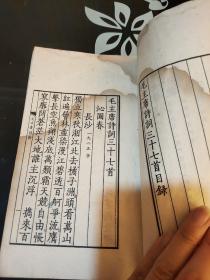 毛主席詩詞三十七首目錄
毛主席詩詞三十七首
沁園春
長沙 一九二五年
獨立寒秋湘江北去橘子洲頭看萬山
紅遍層林盡染漫江碧透百舸爭流鷹
擊長空魚翔淺底萬類霜天競自由悵
寥廓問蒼茫大地誰主沉浮 攜來百